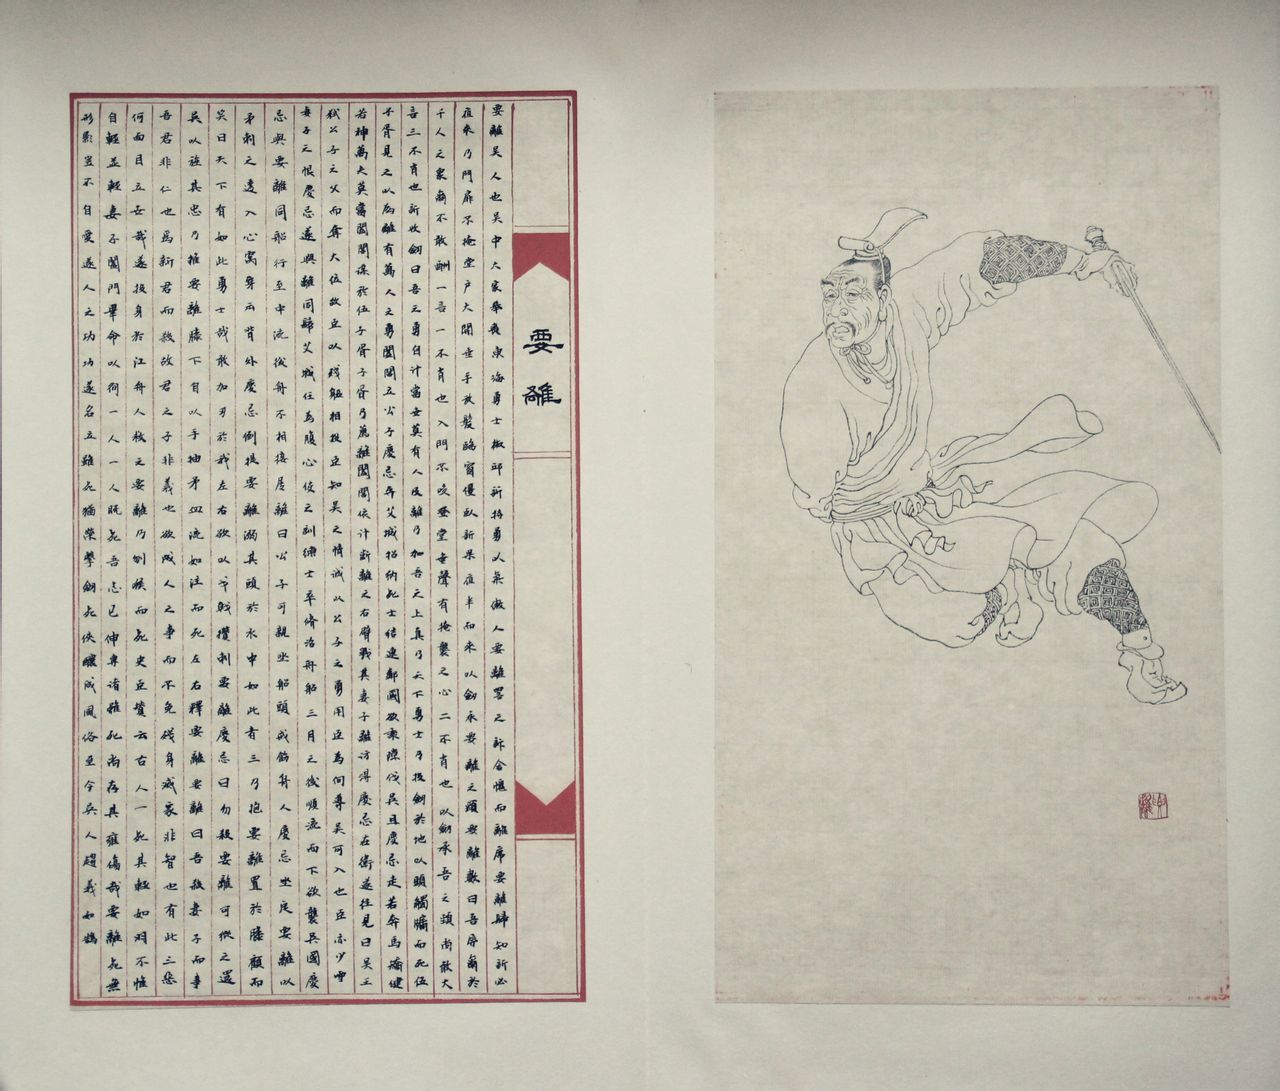 要離
要離吳人也吳中大家舉喪東海勇士椒邱訢持勇以氣傲人要離詈之訢含愠而離席要離歸知訢必
夜來乃門扉不掩堂戶大開垂手放髮臨窗僵臥訢果夜半而來以劍承要離之頸要離數曰吾辱爾於
千人之眾爾不敢酬一言一不肖也入門不咳登堂無聲有掩襲之心二不肖也以劍承吾之頸尚敢大
言三不肖也訢收劍曰吾之勇自計當世莫有人及離乃加吾之上真乃天下勇士乃投劍於地以頭觸牆而死伍
子胥見之以為離有萬人之勇闔閭立公子慶忌奔艾城招納死士結連鄰國欲乘隙伐吳且慶忌走若奔馬矯健
若神萬夫莫當闔閭謀於伍子胥子胥乃薦離闔閭依計斷離之右臂戮其妻子離訪得慶忌在衛遂往見曰吳王
弒公子之父而奪大位故臣以殘軀相投臣知吳之情誠以公子之勇用臣為向導吳可入也臣亦少雪
妻子之恨慶忌遂與離同歸艾城任為腹心使之訓練士卒修治舟船三月之後順流而下欲襲吳國慶
忌與要離同船行至中流後舟不相接屬離曰公子可親坐船頭戒飭舟人慶忌坐定要離以
矛刺之透入心窩穿云背外慶忌倒提要離溺其頭於水中如此者三乃抱要離置於膝顧而
笑曰天下有如此勇士哉敢加刃於我左右欲以戈戟攢刺要離慶忌曰勿殺要離可縱之還
吳以旌其忠乃推要離膝下自以手抽矛血流如注而死左右釋要離要離曰吾殺妻子而事
吾君非仁也為新君而殺故君之子非義也欲成人之事而不免殘身滅家非智也有此三惡
何面目立世哉遂投身於江舟人救之要離乃刎疾而死史臣贊云古人一死其輕如羽不惟
自輕並輕妻子闔門畢命以徇一人一人既死吾志已伸專諸雖死尚存其胤傷哉要離死無
形影豈不自愛遂人之功功遂名立雖死猶榮擊劍死俠釀成風俗至今吳人趨義如鵠